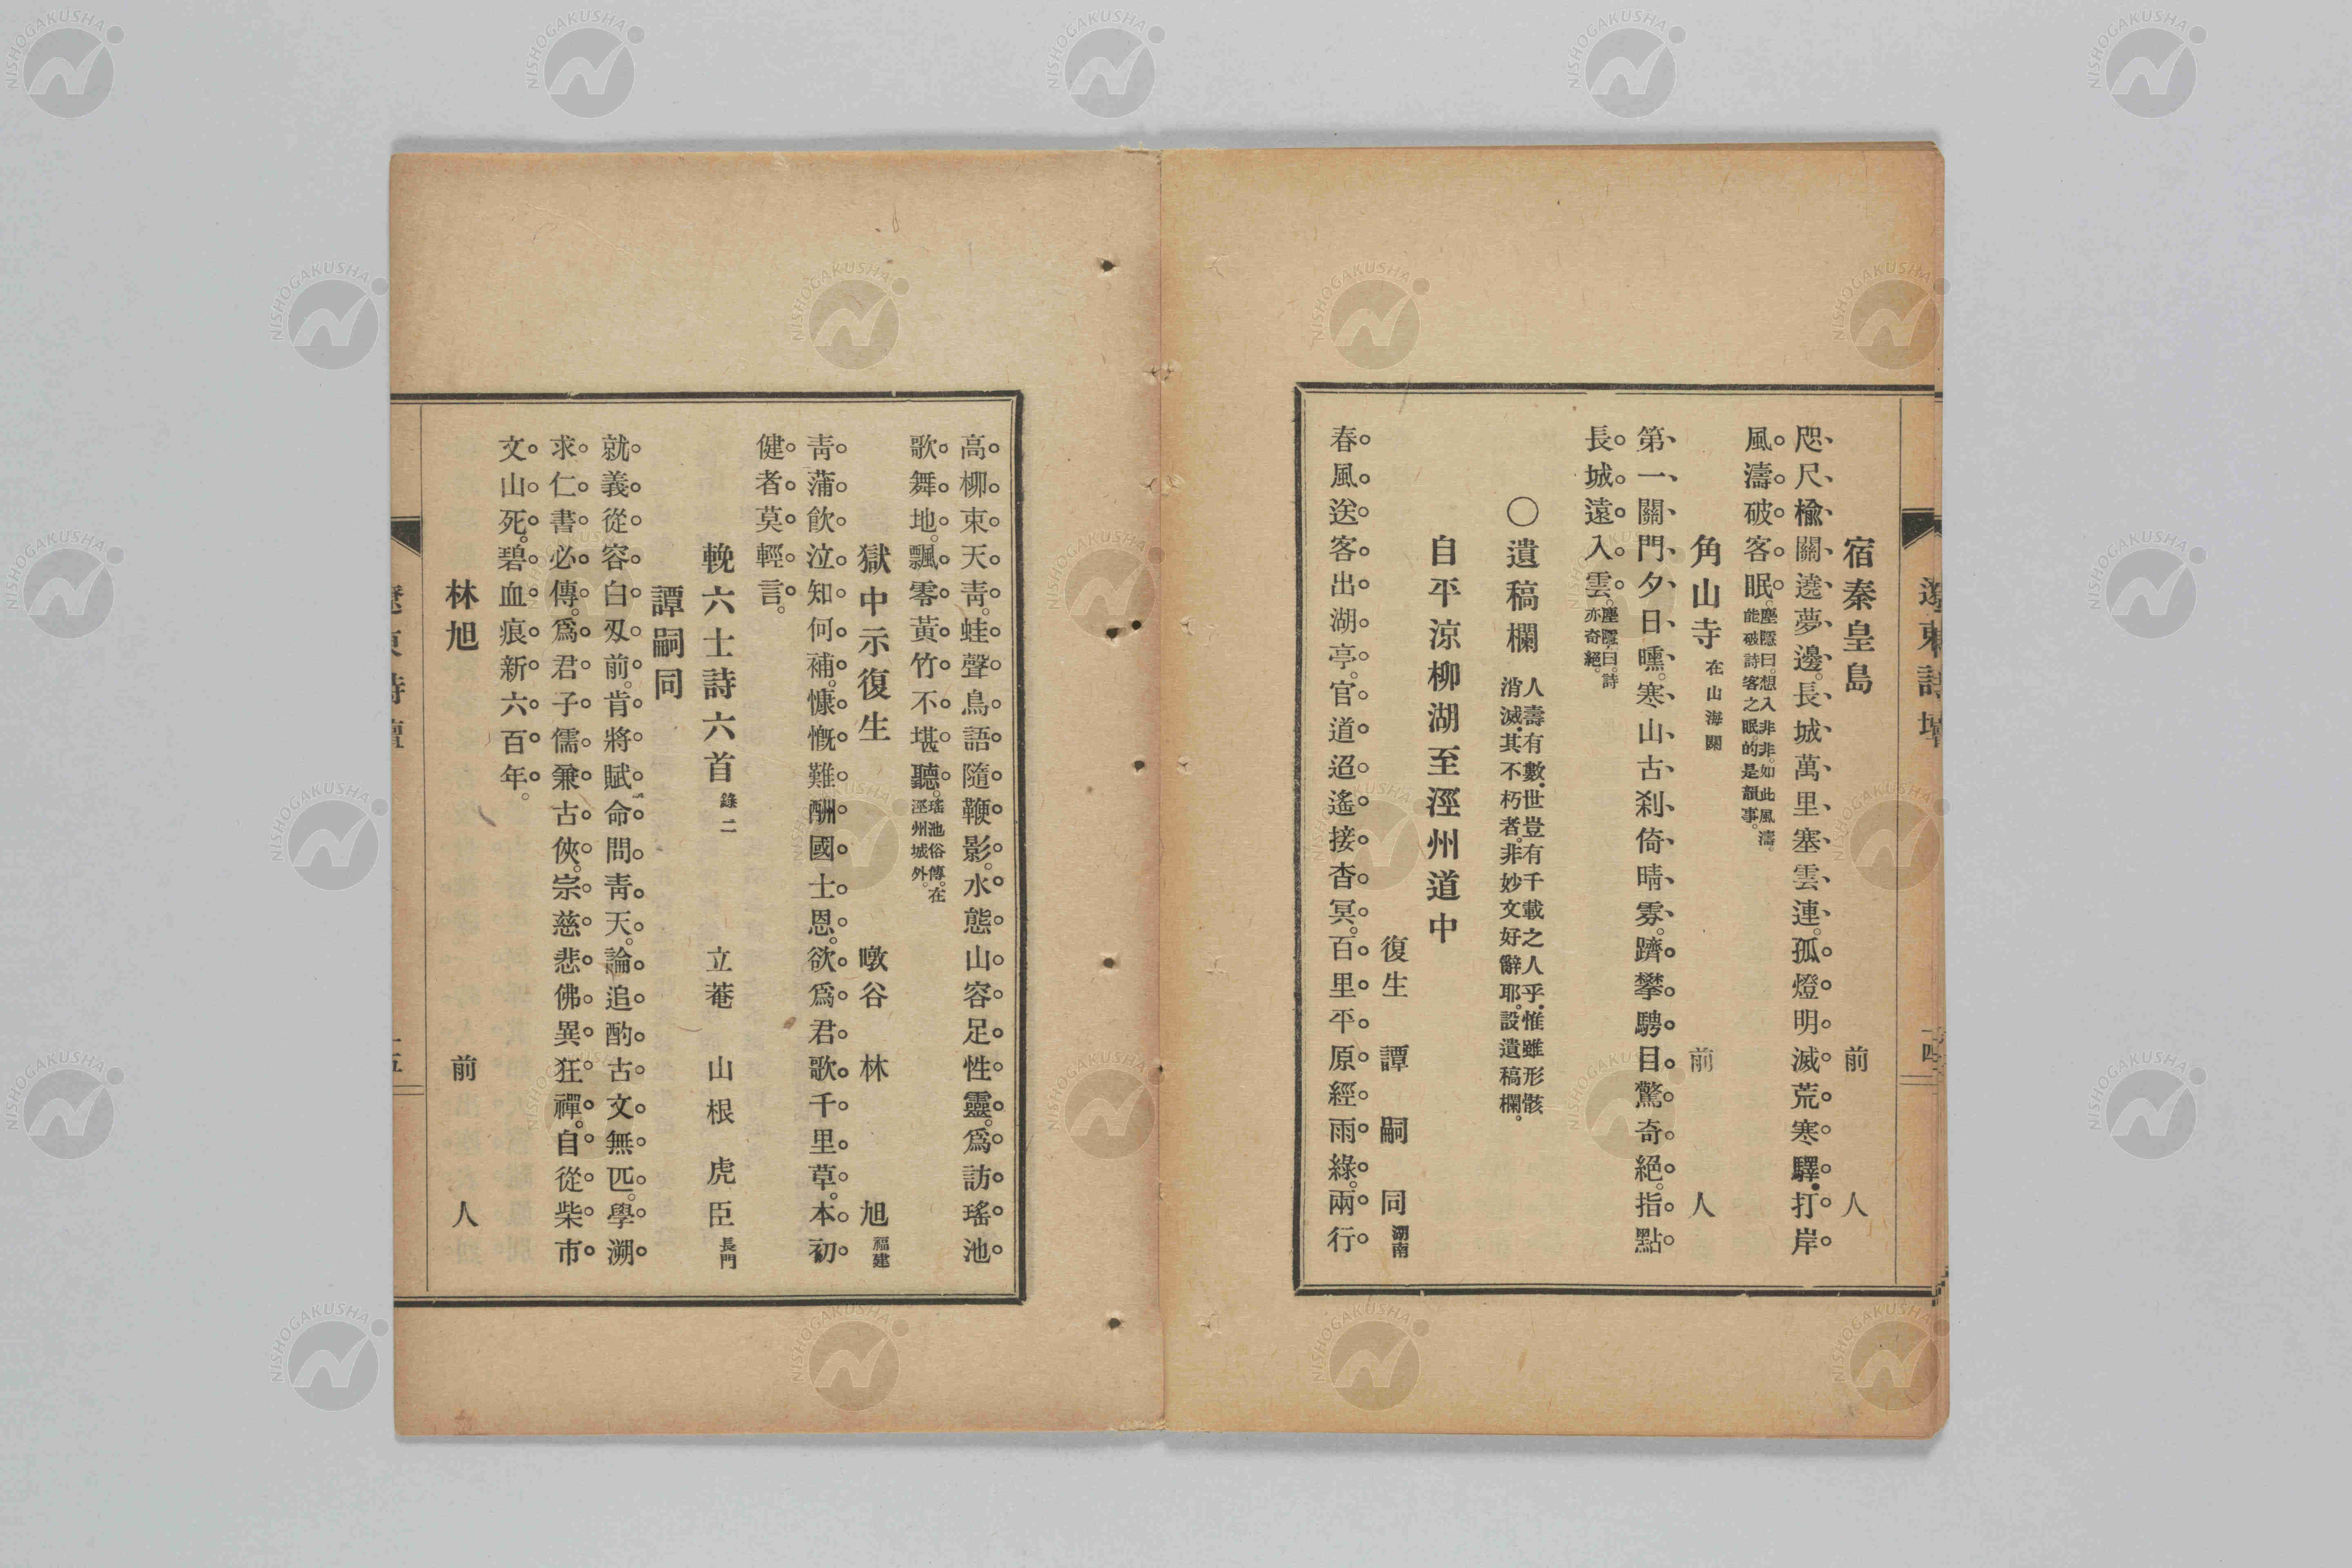 宿秦皇島　前人
咫尺楡關遼夢邊。長城萬里塞雲連。孤燈明滅荒寒驛。打岸
風濤破客眠。塵隱曰。想入非非。如此風濤。能破詩客之眠。的是韻事。
角山寺 在山海關　前人
第一關門夕日曛。寒山古刹倚晴雰。躋攀騁目驚奇絕。指點
長城遠入雲。塵隱曰。詩亦奇絕。
〇遺稿欄 人壽有數。世豈有千載之人乎。惟雖形骸消滅。其不朽者。非妙文好辭耶。設遺稿欄。
自平涼柳湖至涇州道中
復生　譚嗣同 湖南
春風送客出湖亭。官道迢遙接杳冥。百里平原經雨綠。兩行
高柳束天靑。蛙聲鳥語隨鞭影。水態山容足性靈。爲訪瑤池
歌舞地。飄零黃竹不堪聽。瑤池俗傳。在涇州城外。
獄中示復生　暾谷　林旭 福建
靑蒲飮泣知何補。慷慨難酬國士恩。欲爲君歌千里草。本初
健者莫輕言。
輓六士詩六首 錄二　立菴　山根虎臣 長門
譚嗣同
就義從容白刄前。肯將賦命問靑天。論追酌古文無匹。學溯
求仁書必傳。爲君子儒兼古俠。宗慈悲佛異狂禪。自從柴市
文山死。碧血痕新六百年。
林旭　前人
NISHOGAKUSHA